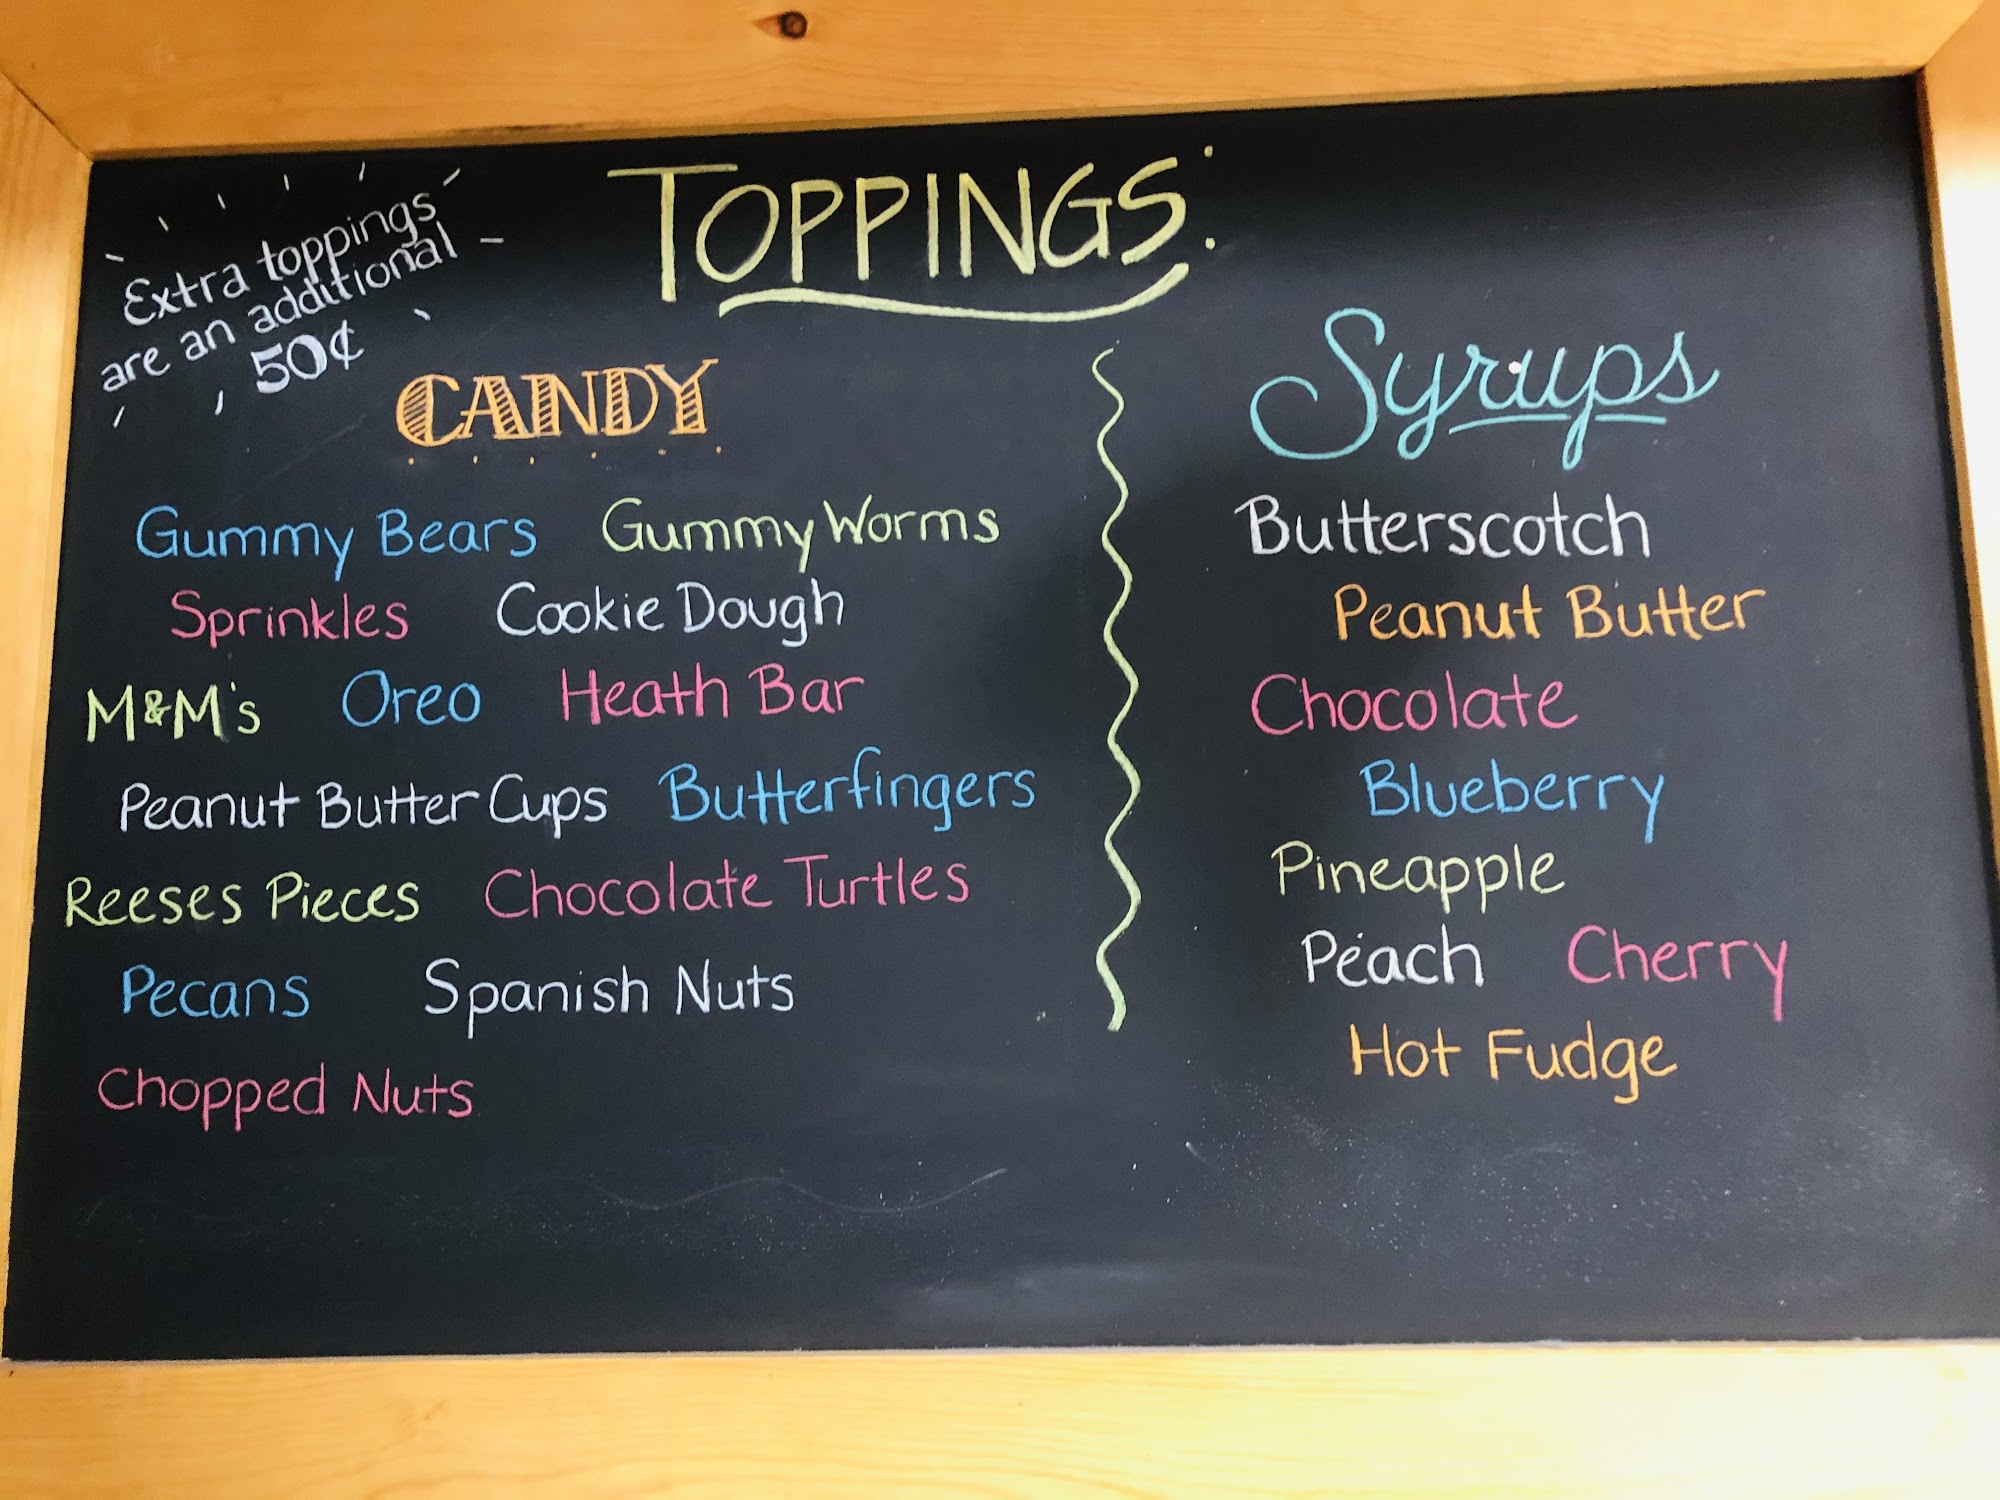 TOPPINGS:
Extra toppings
are an additional
50¢
CANDY
Gummy Bears Gummy Worms
Sprinkles Cookie Dough
M&M's Oreo Heath Bar
Peanut Butter Cups Butterfingers
Reeses Pieces Chocolate Turtles
Pecans Spanish Nuts
Chopped Nuts
Syrups
Butterscotch
Peanut Butter
Chocolate
Blueberry
Pineapple
Peach Cherry
Hot Fudge